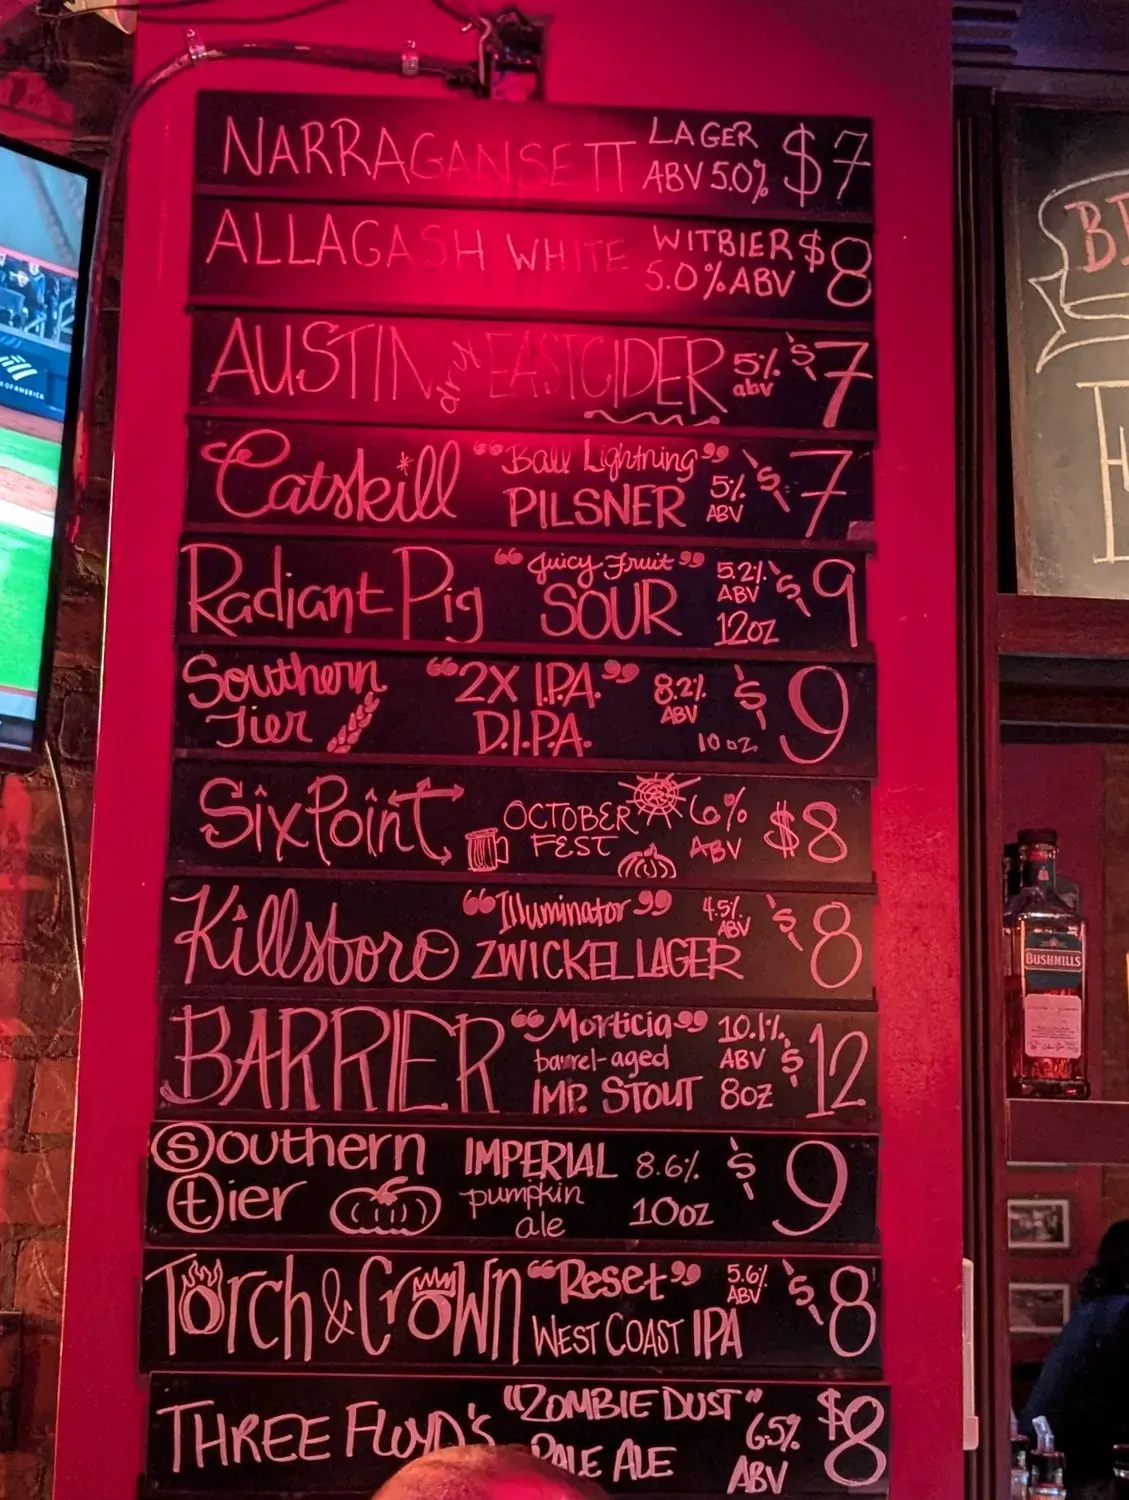 NARRAGANSETT LAGER ABV 5.0% $7
ALLAGASH WHITE WITBIER 5.0% ABV $8
AUSTIN EASTCIDER dry 5% abv $7
Catskill "Ball Lightning" PILSNER 5% ABV $7
Radiant Pig "Juicy Fruit" SOUR 5.2% ABV 12oz $9
Southern Tier "2X I.P.A." D.I.P.A. 8.2% ABV 10oz $9
SixPoint OCTOBER FEST 6% ABV $8
Killsboro "Illuminator" ZWICKEL LAGER 4.5% ABV $8
BARRIER "Morticia" barrel-aged IMP. STOUT 10.1% ABV 8oz $12
Southern tier IMPERIAL pumpkin ale 8.6% 10oz $9
Torch & Crown "Reset" WEST COAST IPA 5.6% ABV $8
THREE FLOYD'S "ZOMBIE DUST" PALE ALE 6.5% ABV $8
BUSHMILLS
OF AMERICA